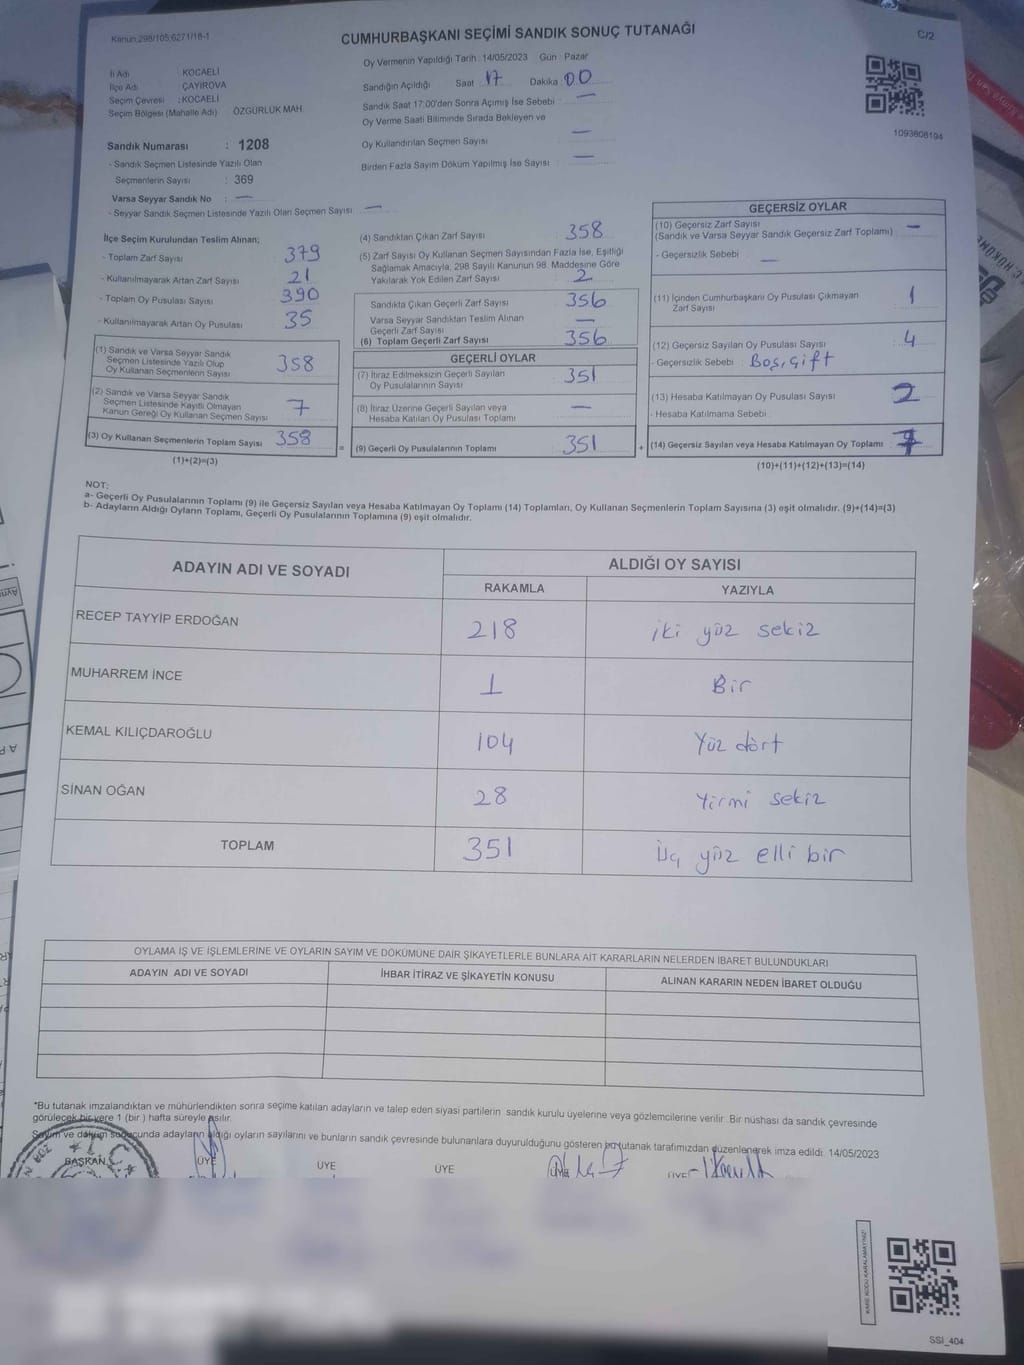 Kanun:298/105;6271/18-1
CUMHURBAŞKANI SEÇİMİ SANDIK SONUÇ TUTANAĞI
C/2
İl Adı KOCAELİ
İlçe Adı ÇAYIROVA
Seçim Çevresi : KOCAELİ
Seçim Bölgesi (Mahalle Adı) ÖZGÜRLÜK MAH.
Oy Vermenin Yapıldığı Tarih : 14/05/2023 Gün : Pazar
Sandığın Açıldığı Saat 17 Dakika 00
Sandık Saat 17:00'den Sonra Açımış İse Sebebi : —
Oy Verme Saati Bitiminde Sırada Bekleyen ve
Oy Kullandırılan Seçmen Sayısı —
Birden Fazla Sayım Döküm Yapılmış İse Sayısı : —
1093608104
Sandık Numarası : 1208
- Sandık Seçmen Listesinde Yazılı Olan
Seçmenlerin Sayısı : 369
Varsa Seyyar Sandık No : —
- Seyyar Sandık Seçmen Listesinde Yazılı Olan Seçmen Sayısı : —
İlçe Seçim Kurulundan Teslim Alınan;
- Toplam Zarf Sayısı : 379
- Kullanılmayarak Artan Zarf Sayısı : 21
- Toplam Oy Pusulası Sayısı : 390
- Kullanılmayarak Artan Oy Pusulası : 35
(1) Sandık ve Varsa Seyyar Sandık
Seçmen Listesinde Yazılı Olup
Oy Kullanan Seçmenlerin Sayısı 358
(2) Sandık ve Varsa Seyyar Sandık
Seçmen Listesinde Kayıtlı Olmayan
Kanun Gereği Oy Kullanan Seçmen Sayısı 7
(3) Oy Kullanan Seçmenlerin Toplam Sayısı 358
(1)+(2)=(3)
(4) Sandıktan Çıkan Zarf Sayısı : 358
(5) Zarf Sayısı Oy Kullanan Seçmen Sayısından Fazla İse, Eşitliği
Sağlamak Amacıyla, 298 Sayılı Kanunun 98. Maddesine Göre
Yakılarak Yok Edilen Zarf Sayısı : 2
Sandıkta Çıkan Geçerli Zarf Sayısı : 356
Varsa Seyyar Sandıktan Teslim Alınan
Geçerli Zarf Sayısı : —
(6) Toplam Geçerli Zarf Sayısı : 356
GEÇERLİ OYLAR
(7) İtiraz Edilmeksizin Geçerli Sayılan
Oy Pusulalarının Sayısı : 351
(8) İtiraz Üzerine Geçerli Sayılan veya
Hesaba Katılan Oy Pusulası Toplamı : —
= (9) Geçerli Oy Pusulalarının Toplamı : 351
GEÇERSİZ OYLAR
(10) Geçersiz Zarf Sayısı
(Sandık ve Varsa Seyyar Sandık Geçersiz Zarf Toplamı) : —
- Geçersizlik Sebebi : —
(11) İçinden Cumhurbaşkanı Oy Pusulası Çıkmayan
Zarf Sayısı : 1
(12) Geçersiz Sayılan Oy Pusulası Sayısı : 4
- Geçersizlik Sebebi : Boş, Çift
(13) Hesaba Katılmayan Oy Pusulası Sayısı : 2
- Hesaba Katılmama Sebebi :
+ (14) Geçersiz Sayılan veya Hesaba Katılmayan Oy Toplamı : 7
(10)+(11)+(12)+(13)=(14)
NOT:
a- Geçerli Oy Pusulalarının Toplamı (9) ile Geçersiz Sayılan veya Hesaba Katılmayan Oy Toplamı (14) Toplamları, Oy Kullanan Seçmenlerin Toplam Sayısına (3) eşit olmalıdır. (9)+(14)=(3)
b- Adayların Aldığı Oyların Toplamı, Geçerli Oy Pusulalarının Toplamına (9) eşit olmalıdır.
ADAYIN ADI VE SOYADI ALDIĞI OY SAYISI
RAKAMLA YAZIYLA
RECEP TAYYİP ERDOĞAN 218 iki yüz sekiz
MUHARREM İNCE 1 Bir
KEMAL KILIÇDAROĞLU 104 Yüz dört
SİNAN OĞAN 28 Yirmi sekiz
TOPLAM 351 Üç yüz elli bir
OYLAMA İŞ VE İŞLEMLERİNE VE OYLARIN SAYIM VE DÖKÜMÜNE DAİR ŞİKAYETLERLE BUNLARA AİT KARARLARIN NELERDEN İBARET BULUNDUKLARI
ADAYIN ADI VE SOYADI İHBAR İTİRAZ VE ŞİKAYETİN KONUSU ALINAN KARARIN NEDEN İBARET OLDUĞU
*Bu tutanak imzalandıktan ve mühürlendikten sonra seçime katılan adayların ve talep eden siyasi partilerin sandık kurulu üyelerine veya gözlemcilerine verilir. Bir nüshası da sandık çevresinde
görülecek bir yere 1 (bir ) hafta süreyle asılır.
Sayım ve döküm sonucunda adayların aldığı oyların sayılarını ve bunların sandık çevresinde bulunanlara duyurulduğunu gösteren bu tutanak tarafımızdan düzenlenerek imza edildi. 14/05/2023
BAŞKAN ÜYE ÜYE ÜYE ÜYE ÜYE
T.C.
KARE KODU KARALAMAYINIZ!
SSI_404